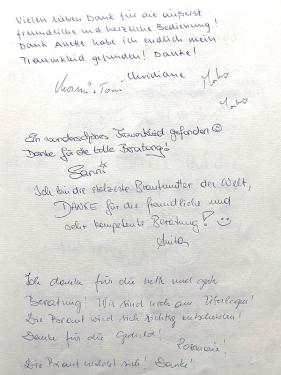 Vielen lieben Dank für die äußerst
freundliche und herzliche Bedienung!
Dank Anette habe ich endlich mein
Traumkleid gefunden! Danke!
Viridiane
Ein wunderschönes Traumkleid gefunden ☺
Danke für die tolle Beratung!
Sanni
Ich bin die stolzeste Brautmutter der Welt,
DANKE für die freundliche und
sehr kompetente Beratung! ☺
Ich danke für die nette und gute
Beratung! Wir sind noch am Überlegen!
Die Braut wird sich richtig entscheiden!
Danke für die Geduld!
Die Braut meldet sich! Danke!